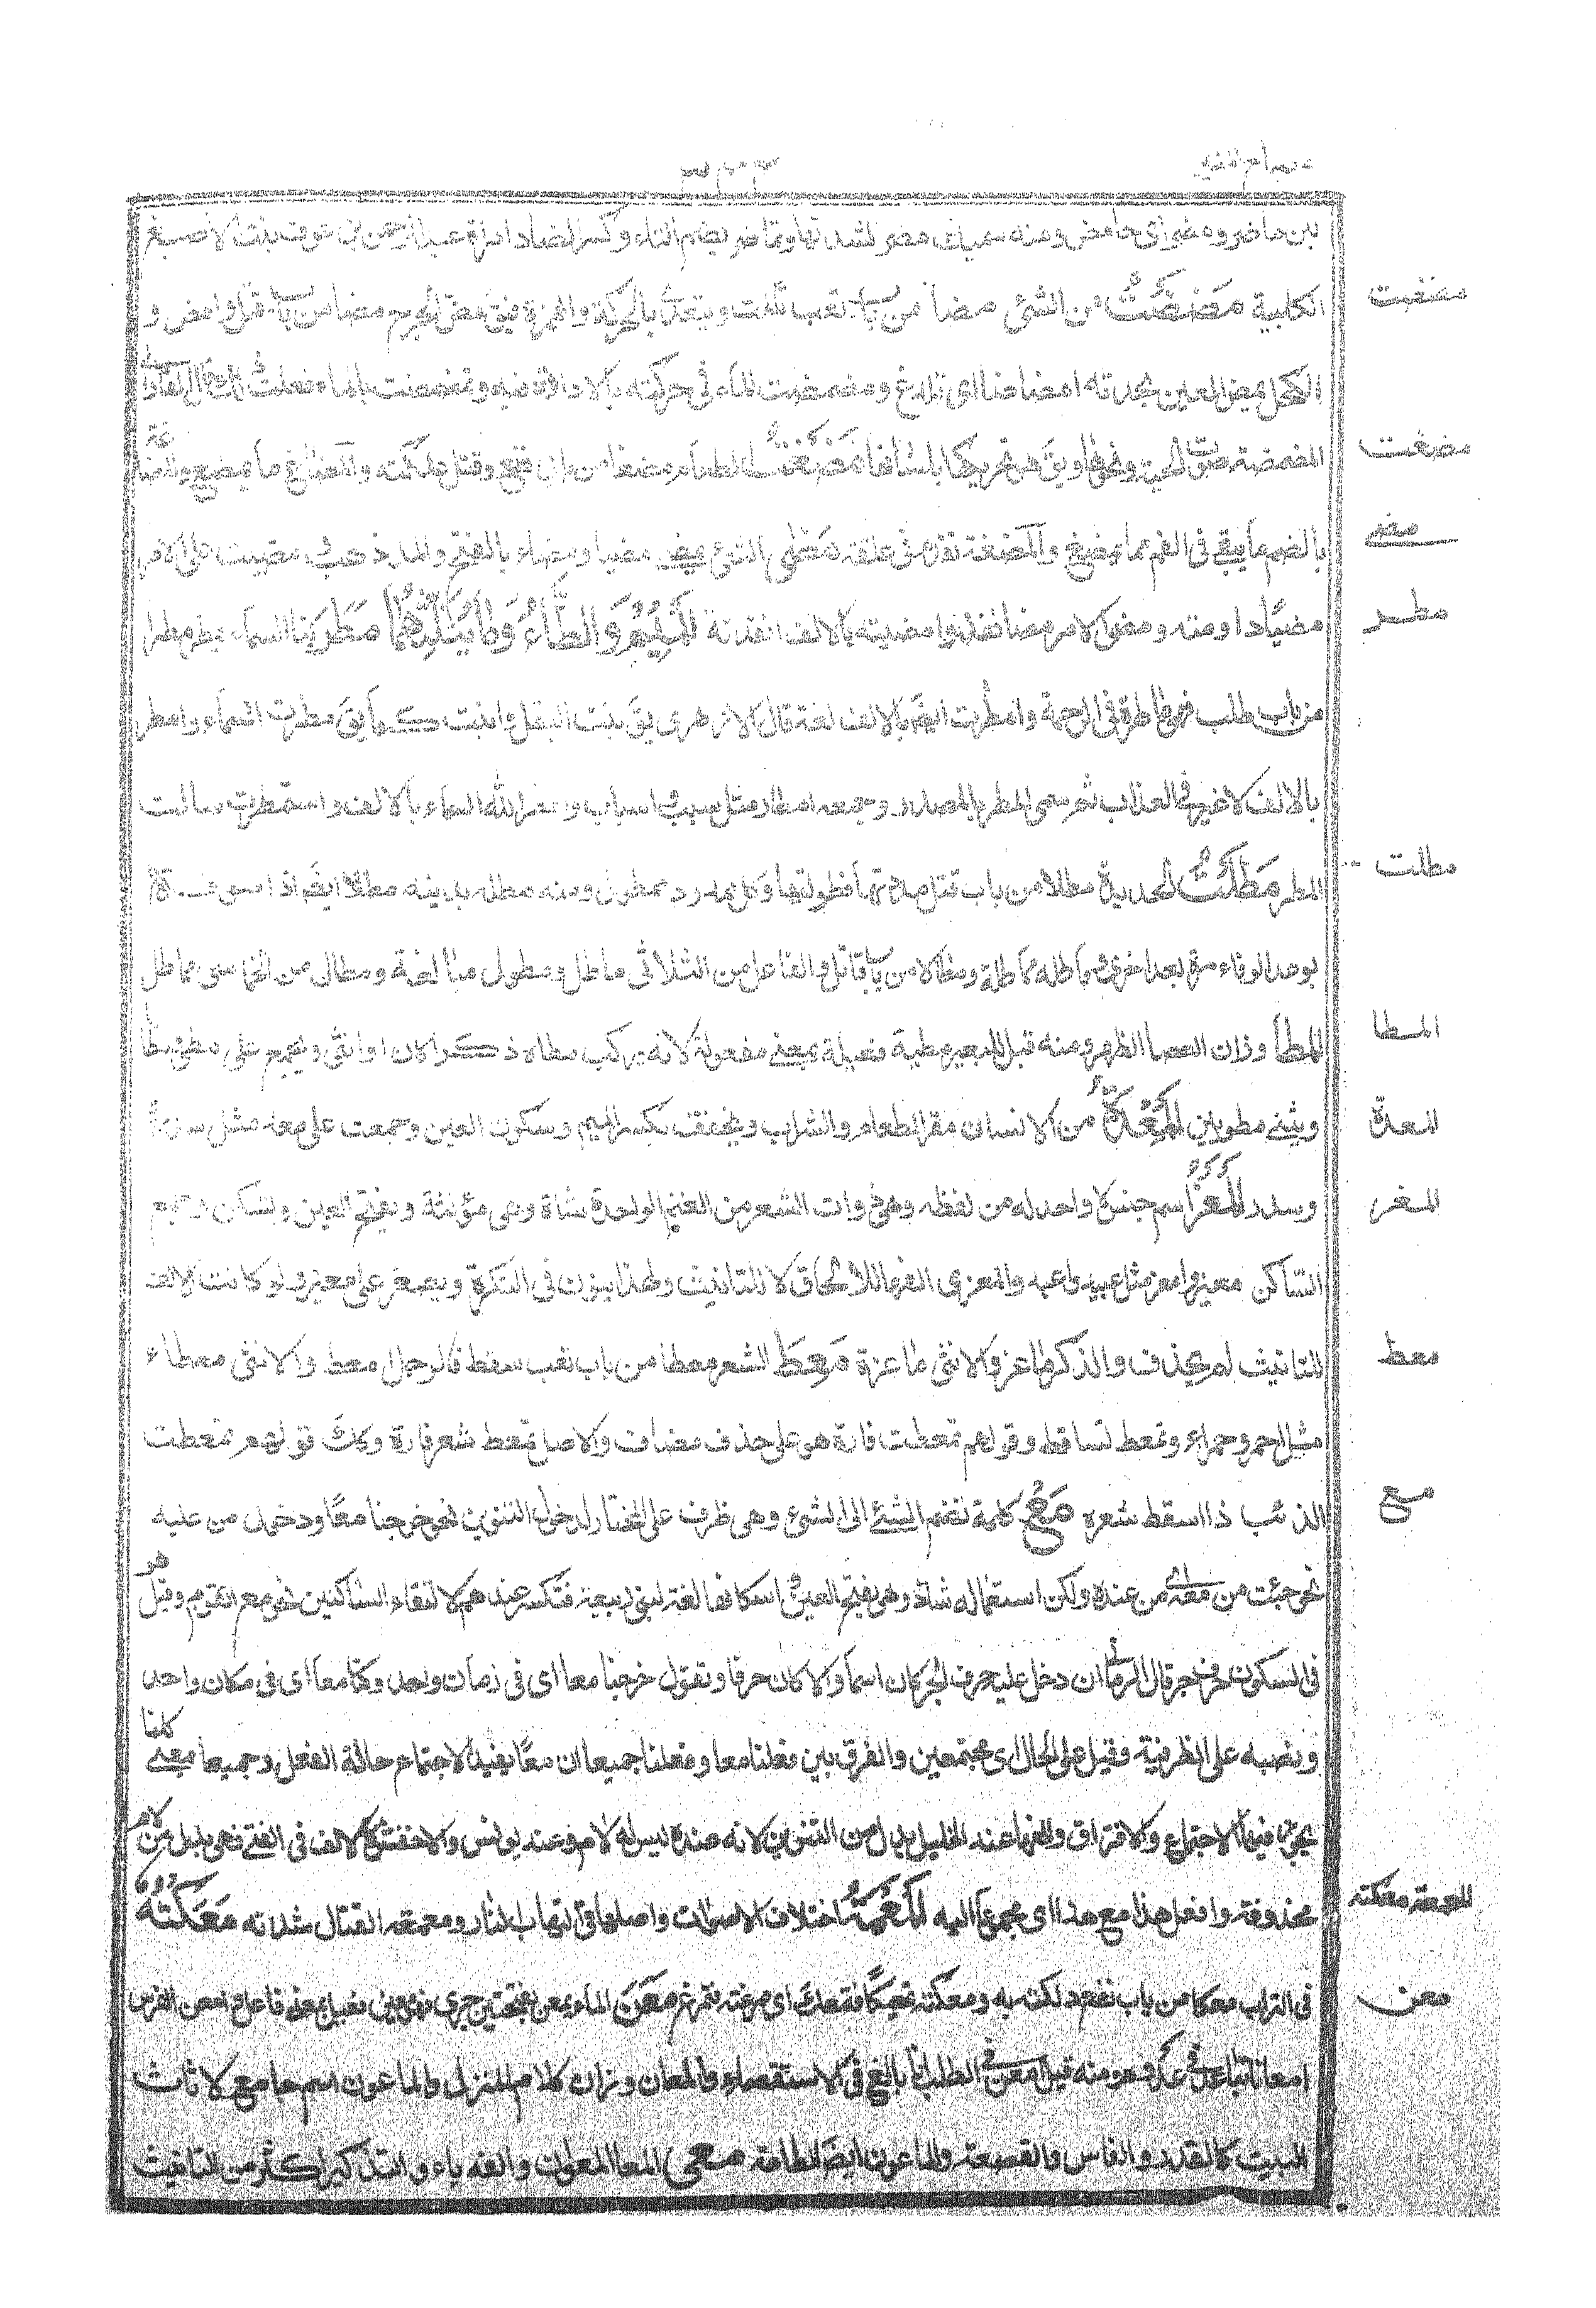 مصباح المنير
لبن ماضر وهضيراى حامض ومنه سميت مضر لشد تها وتماضر بضم التاء وكسر الضاد امراة عبد الرحمن بن عوف بنت الاصبغ
الكلبية مَضِضْتُ من الشئ مضضا من باب تعب تالمت ويتعدى بالحركة والهمزة فيق مضنى الجرح مضا من باب قتل وامضنى و
الكحل يمض العين بحدته امضاضا اى تلذع ومضمضت الماء فى حركته بالادارة فيه وتمضمضت بالماء فعلت
المضمضة صوت الحية ونحوها ويق هو تحريكها لسانها مَضَغْتُ الطعام مضغا من بابى نفع وقتل علكته والمضاغ ما يمضغ والمضاغة
بالضم ما يبقى فى الفم مما يمضغ والمضغة تقدم فى علقة مضى الشئ يمضى مضيا ومضاء بالفتح والمد ذهب ومضيت على الامر
مضيّا داومته ومضى الامر مضاء نفذ وامضيته بالالف انفذته الميم والطاء وما يثلثهما مطرتنا السماء تمطر مطرا
من باب طلب فهى ماطرة فى الرحمة وامطرت ايضا بالالف لغة قال الازهرى يق نبت البقل وانبت كما يق مطرت السماء وامطرت
بالالف لا غير فى العذاب ثم سمى المطر بالمصدر وجمعه امطار مثل سبب واسباب وامطر الله السماء بالالف واستمطرت سالت
المطر مَطَلْتُ الحديدة مطلا من باب قتل مددتها وطولتها وكل ممدود ممطول ومنه مطله بدينه مطلا ايضا اذا سوفه
بوعد الوفاء مرة بعد اخرى وماطله مماطلة ومطالا من باب قاتل والفاعل من الثلاثى ماطل ومطول مبالغة ومطال من الخماسى مماطل
المطا وزان العصا الظهر ومنه قيل للبعير مطية فعيلة بمعنى مفعولة لانه يركب مطاه ذكرا كان او انثى ويجمع على مطى ومطايا
ويثنى مطوين المَعِدَةُ من الانسان مقر الطعام والشراب وتخفف بكسر الميم وسكون العين وجمعت على معد مثل سدرة
وسدر المَعْزُ اسم جنس لا واحد له من لفظه وهى ذوات الشعر من الغنم الواحدة شاة وهى مؤنثة وبفتح العين وتسكن وجمع
الساكن معيز وامعز مثل عبيد واعبد والمعزى الفها للالحاق لا للتانيث ولهذا ينون فى النكرة ويصغر على معيز ولو كانت الالف
للتانيث لم يحذف والذكر ماعز والانثى ماعزة مَعِطَ الشعر معطا من باب تعب سقط فالرجل امعط والانثى معطاء
مثل احمر وحمراء وتمعط تساقط وقولهم تمعطت فارة هو على حذف مضاف والاصل تمعط شعر فارة وكك قولهم تمعطت
الذئب اذا اسقط شعره مَعَ كلمة تضم الشئ الى الشئ وهى ظرف على المختار لدخول التنوين نحو خرجنا معًا ودخول من عليه
نحو جئت من معه اى من عنده ولكن استعماله شاذ وهو بفتح العين واسكانها لغة لبنى ربيعة فتكسر عندهم لالتقاء الساكنين نحو مع القوم وقيل هو
فى السكون حرف جر قال الرمانى ان دخل عليه حرف الجر كان اسما والا كان حرفا وتقول خرجنا معا اى فى زمان واحد وكنا معا اى فى مكان واحد
ونصبه على الظرفية وقيل على الحال اى مجتمعين والفرق بين فعلنا معا وفعلنا جميعا ان معًا يفيد الاجتماع حالة الفعل وجميعا بمعنى كلنا
يجوز فيها الاجتماع والافتراق والفها عند الخليل بدل من التنوين لانه عنده ليس له لام وعند يونس والاخفش كالالف فى الفتى فهى بدل من لام
محذوفة وافعل هذا مع هذا اى مجموعا اليه المعمعة اختلاف الاصوات واصلها فى التهاب النار ومعمعة القتال شدته مَعَكْتُهُ
فى التراب معكا من باب نفع دلكته به ومعكته تمعيكا فتمعك اى مرغته فتمرغ مَعَنَ الماء يمعن بفتحتين جرى فهو معين فعيل بمعنى فاعل وامعن الفرس
امعانا تباعد فى عدوه ومنه قيل امعن فى الطلب اذا بالغ فى الاستقصاء والمعان وزان كلام المنزل والماعون اسم جامع لاثاث
البيت كالقدر والفاس والقصعة والماعون ايضا الطاعة معى المعا المعلوم والفه ياء والتذكير اكثر من التانيث
مضضت
مضغت
مضى
مطر
مطلت
المطا
المعدة
المعز
معط
مع
المعمعة معكته
معن